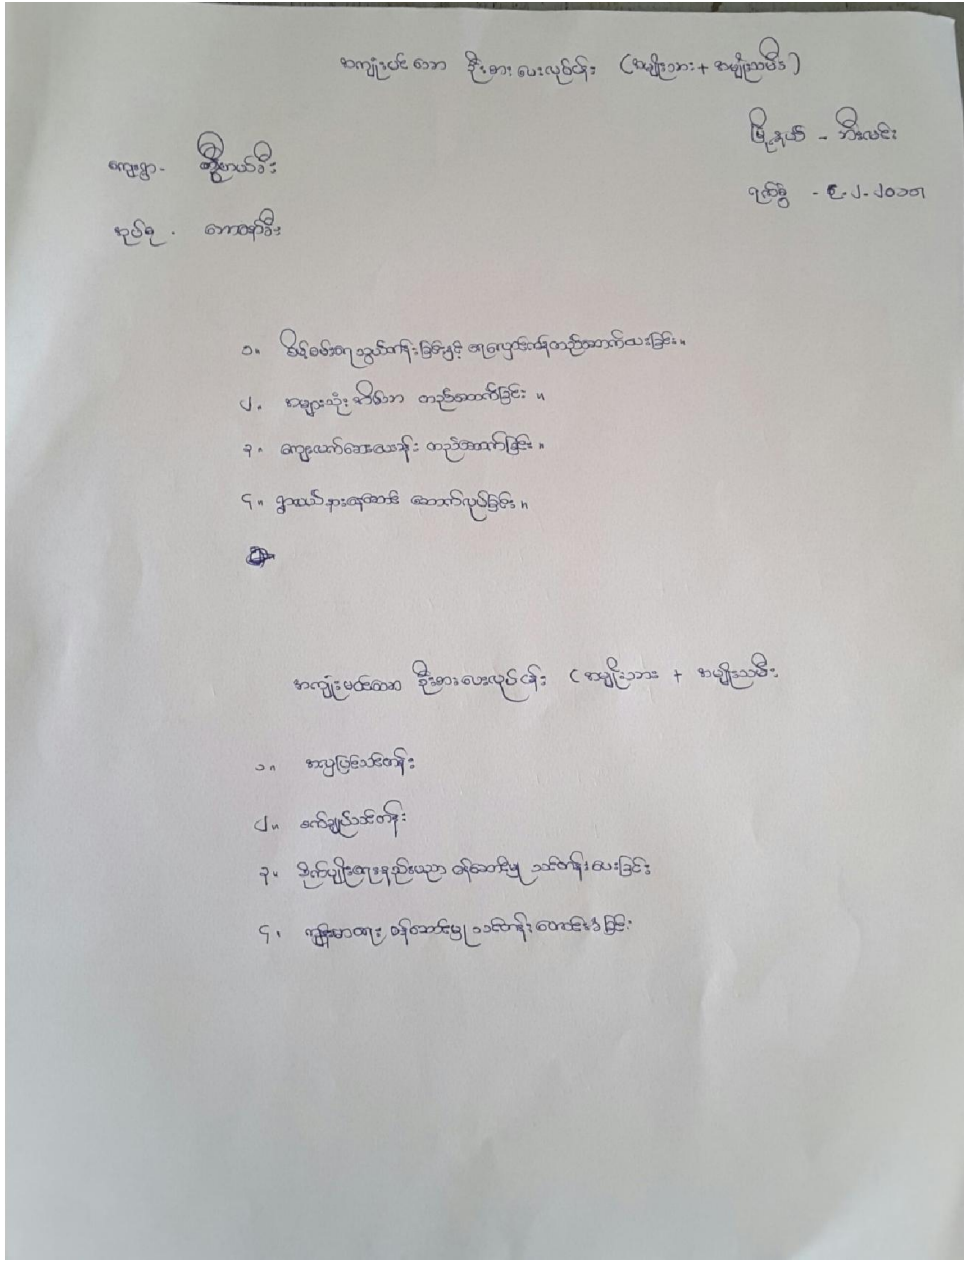 အကျုံးဝင်သော ဦးစားပေးလုပ်ငန်း (အမျိုးသား + အမျိုးသမီး)
မြို့နယ် - ဘီးလင်း
ကျေးရွာ -
ရက်စွဲ - ၉-၂-၂၀၁၈
အုပ်စု -
၁။ စိမ့်စမ်းရေသွယ်တန်းခြင်းနှင့် ရေလှောင်ကန်တည်ဆောက်ထားခြင်း။
၂။ အများသုံး အိမ်သာ တည်ဆောက်ခြင်း။
၃။ ကျေးလက်ဆေးပေးခန်း တည်ဆောက်ခြင်း။
၄။ ရွာလယ်နားနေဆောင် ဆောက်လုပ်ခြင်း။
အကျုံးမဝင်သော ဦးစားပေးလုပ်ငန်း (အမျိုးသား + အမျိုးသမီး
၁။ အလှပြင်သင်တန်း
၂။ စက်ချုပ်သင်တန်း
၃။ စိုက်ပျိုးရေးနည်းပညာ ဝန်ဆောင်မှု သင်တန်းပေးခြင်း
၄။ ကျန်းမာရေး ဝန်ဆောင်မှု သင်တန်း တောင်းခံခြင်း